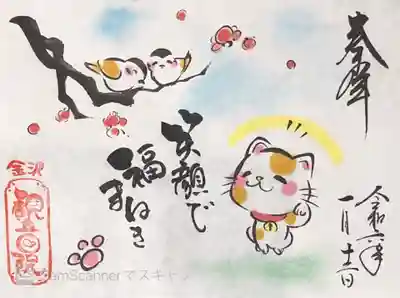 奉拝
笑顔で
福まねき
令和
一月
金沢
観音院
CamScannerでスキャン